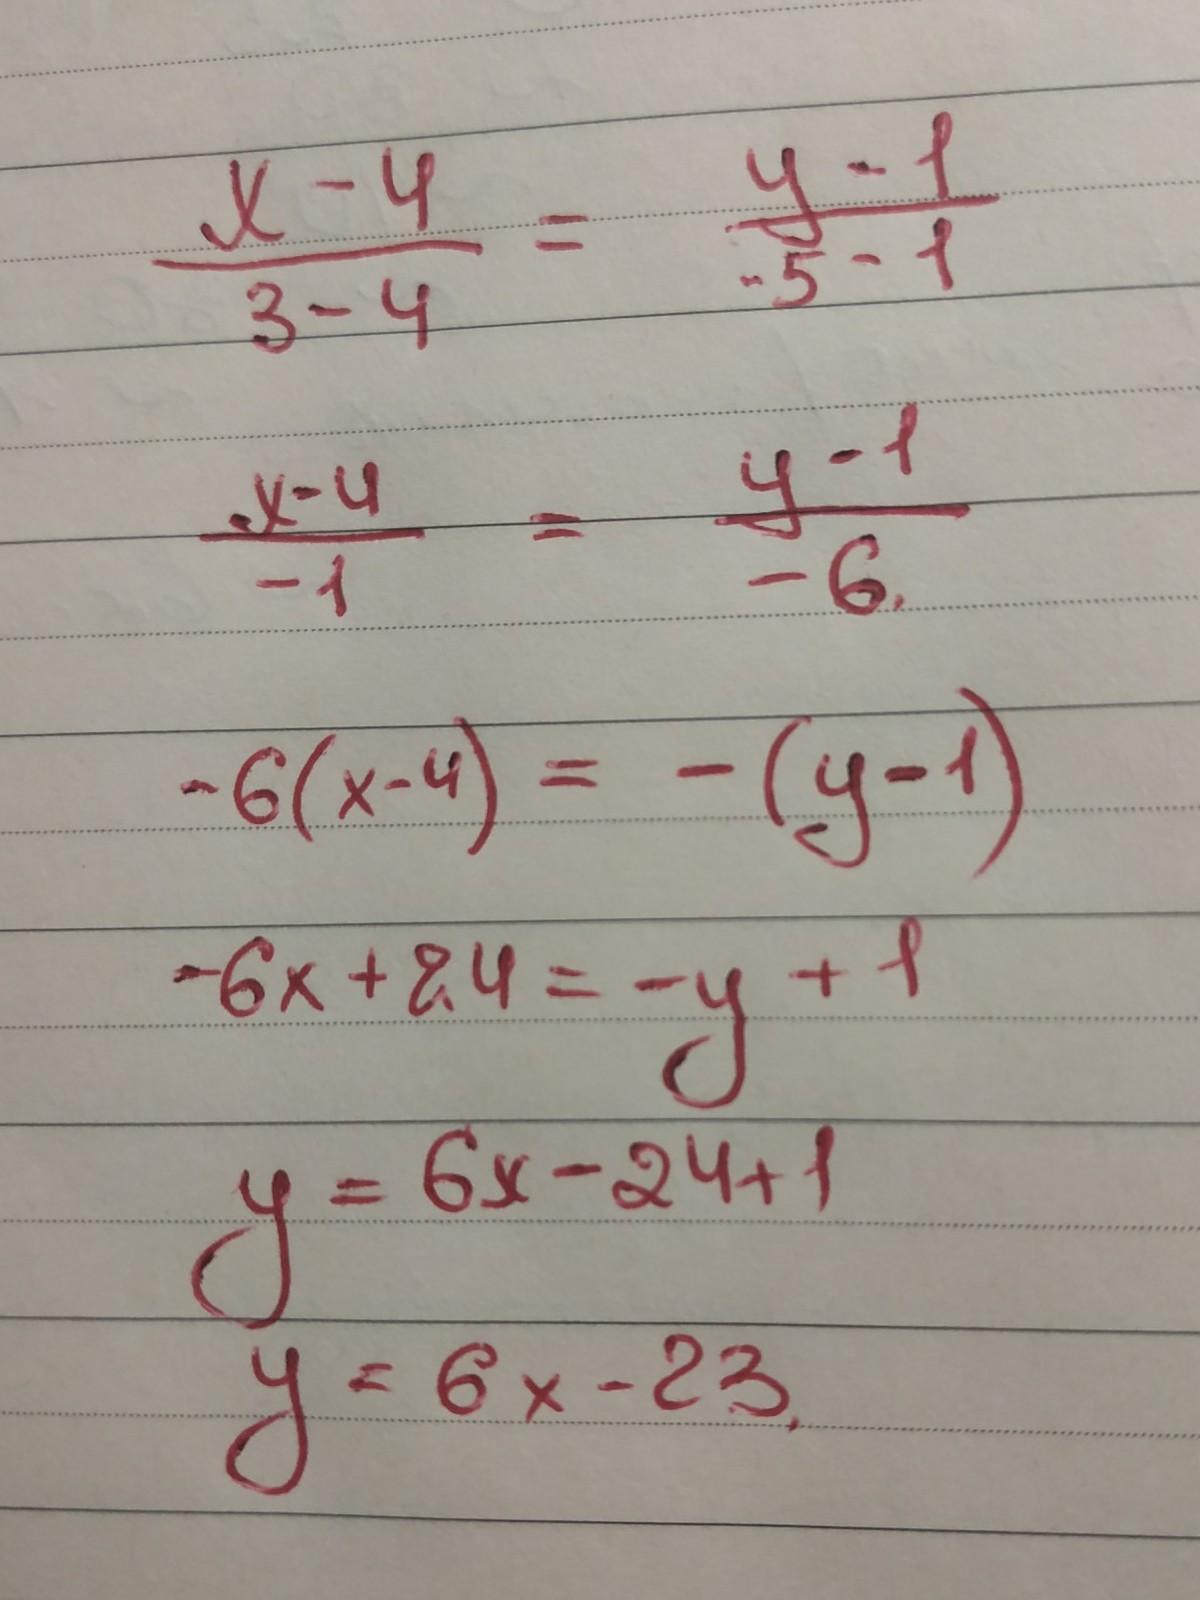 x - 4 / 3 - 4 = y - 1 / -5 - 1
x - 4 / -1 = y - 1 / -6.
-6(x-4) = -(y-1)
-6x + 24 = -y + 1
y = 6x - 24 + 1
y = 6x - 23.